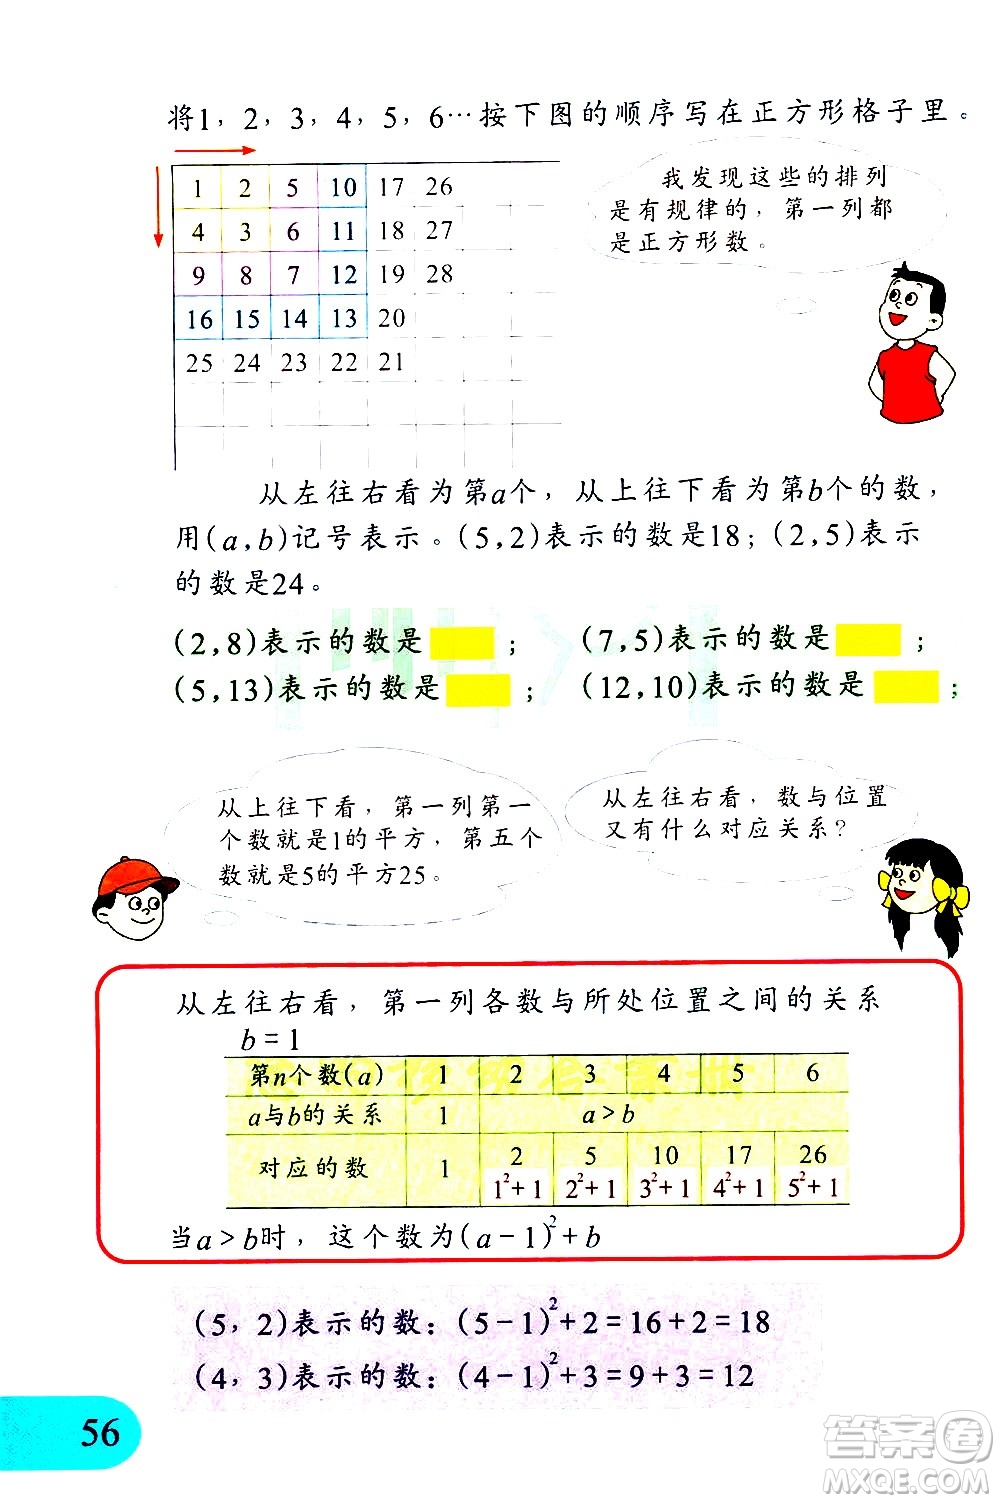 将1，2，3，4，5，6…按下图的顺序写在正方形格子里。
1 2 5 10 17 26
4 3 6 11 18 27
9 8 7 12 19 28
16 15 14 13 20
25 24 23 22 21
我发现这些的排列
是有规律的，第一列都
是正方形数。
从左往右看为第a个，从上往下看为第b个的数，
用(a,b)记号表示。(5,2)表示的数是18；(2,5)表示
的数是24。
(2,8)表示的数是 ； (7,5)表示的数是 ；
(5,13)表示的数是 ； (12,10)表示的数是 ；
从上往下看，第一列第一
个数就是1的平方，第五个
数就是5的平方25。
从左往右看，数与位置
又有什么对应关系？
从左往右看，第一列各数与所处位置之间的关系
b=1
第n个数(a) 1 2 3 4 5 6
a与b的关系 1 a>b
对应的数 1 2 5 10 17 26
1²+1 2²+1 3²+1 4²+1 5²+1
当a>b时，这个数为(a-1)²+b
(5，2)表示的数：(5-1)²+2=16+2=18
(4，3)表示的数：(4-1)²+3=9+3=12
56
答案圈
MXQE.COM